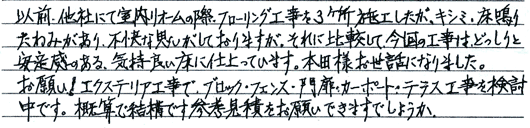 以前、他社にて室内リフォームの際フローリング工事を3ヶ所施工したが、キシミ、床鳴り
たわみがあり、不快な思いがしておりますが、それに比較して今回の工事は、どっしりと
安定感のある、気持良い床に仕上っています。本田様お世話になりました。
お願い！エクステリア工事で、ブロック・フェンス・門扉・カーポート・テラス工事を検討
中です。概算で結構です参考見積をお願いできますでしょうか。